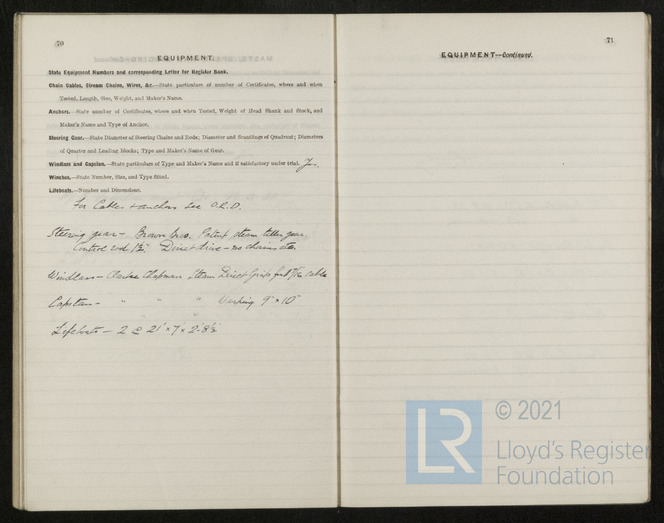 70
EQUIPMENT.
State Equipment Numbers and corresponding Letter for Register Book.
Chain Cables, Stream Chains, Wires, &c.—State particulars of number of Certificates, where and when
Tested, Length, Size, Weight, and Maker's Name.
Anchors.—State number of Certificates, where and when Tested, Weight of Head Shank and Stock, and
Maker's Name and Type of Anchor.
Steering Gear.—State Diameter of Steering Chains and Rods; Diameter and Scantlings of Quadrant; Diameters
of Quarter and Leading Blocks; Type and Maker's Name of Gear.
Windlass and Capstan.—State particulars of Type and Maker's Name and if satisfactory under trial. Yes.
Winches.—State Number, Size, and Type fitted.
Lifeboats.—Number and Dimensions.
For Cables & anchors see
Steering gear - Brown Bros. Patent steam tiller gear.
Control rod 1½". Direct drive - no chains etc.
Windlass - Clarke Chapman Steam Direct Grip for cable
Capstan - " " " Working 9" × 10"
Lifeboats - 2 21' × 7' × 2-8½
71
EQUIPMENT—Continued.
LR
© 2021
Lloyd's Register
Foundation